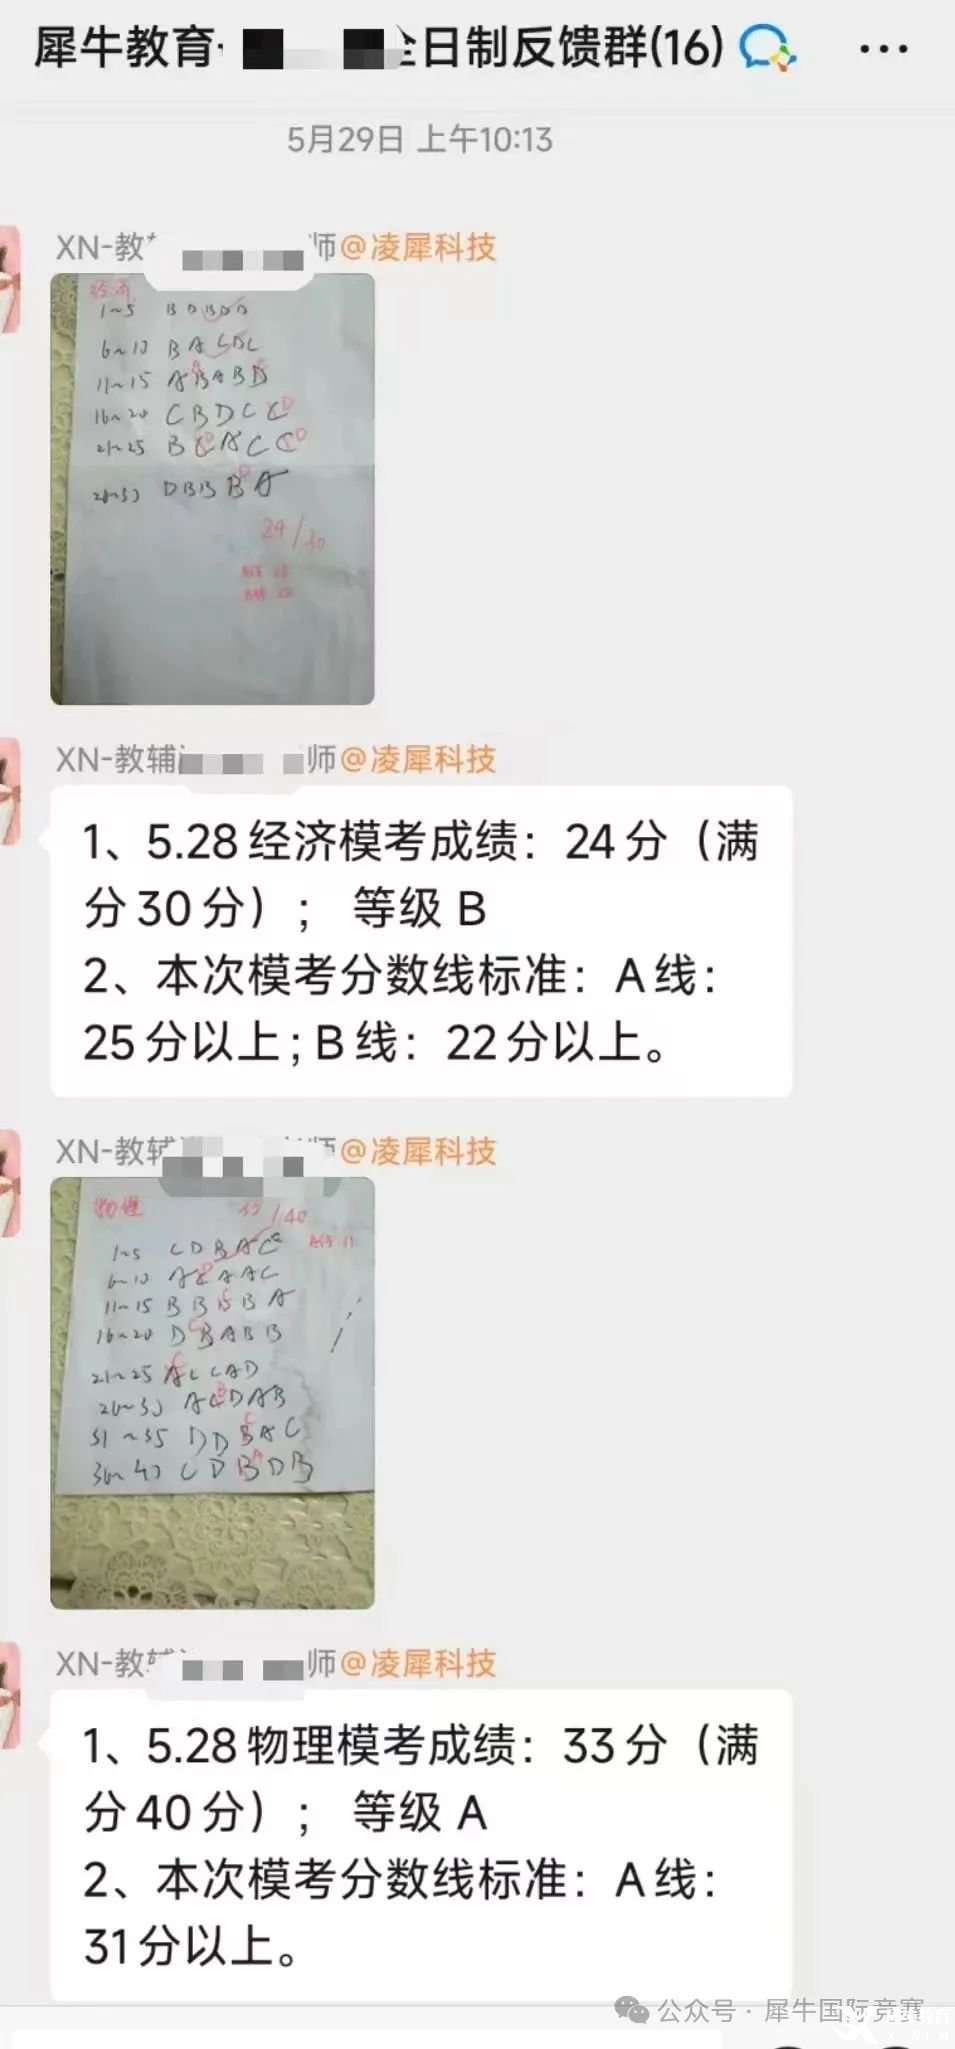 犀牛教育· 全日制反馈群(16)
5月29日 上午10:13
XN-教 师@凌犀科技
经济
1~5 B D B D D
6~10 B A C D C
11~15 A B A B D
16~20 C B D C C D
21~25 B C D A C C D
26~30 D B B B D A
24/30
XN-教辅 师@凌犀科技
1、5.28经济模考成绩：24分（满
分30分）； 等级 B
2、本次模考分数线标准：A线：
25分以上；B线：22分以上。
XN-教辅 师@凌犀科技
物理 /40
1~5 C D B A C
6~10 A C A A C
11~15 B B B B A
16~20 D B A B B
21~25 A C C A D
26~30 A C D A B
31~35 D D B A C
36~40 C D B A D B
XN-教 师@凌犀科技
1、5.28物理模考成绩：33分（满
分40分）； 等级 A
2、本次模考分数线标准：A线：
31分以上。
公众号 · 犀牛国际竞赛
X-NEW